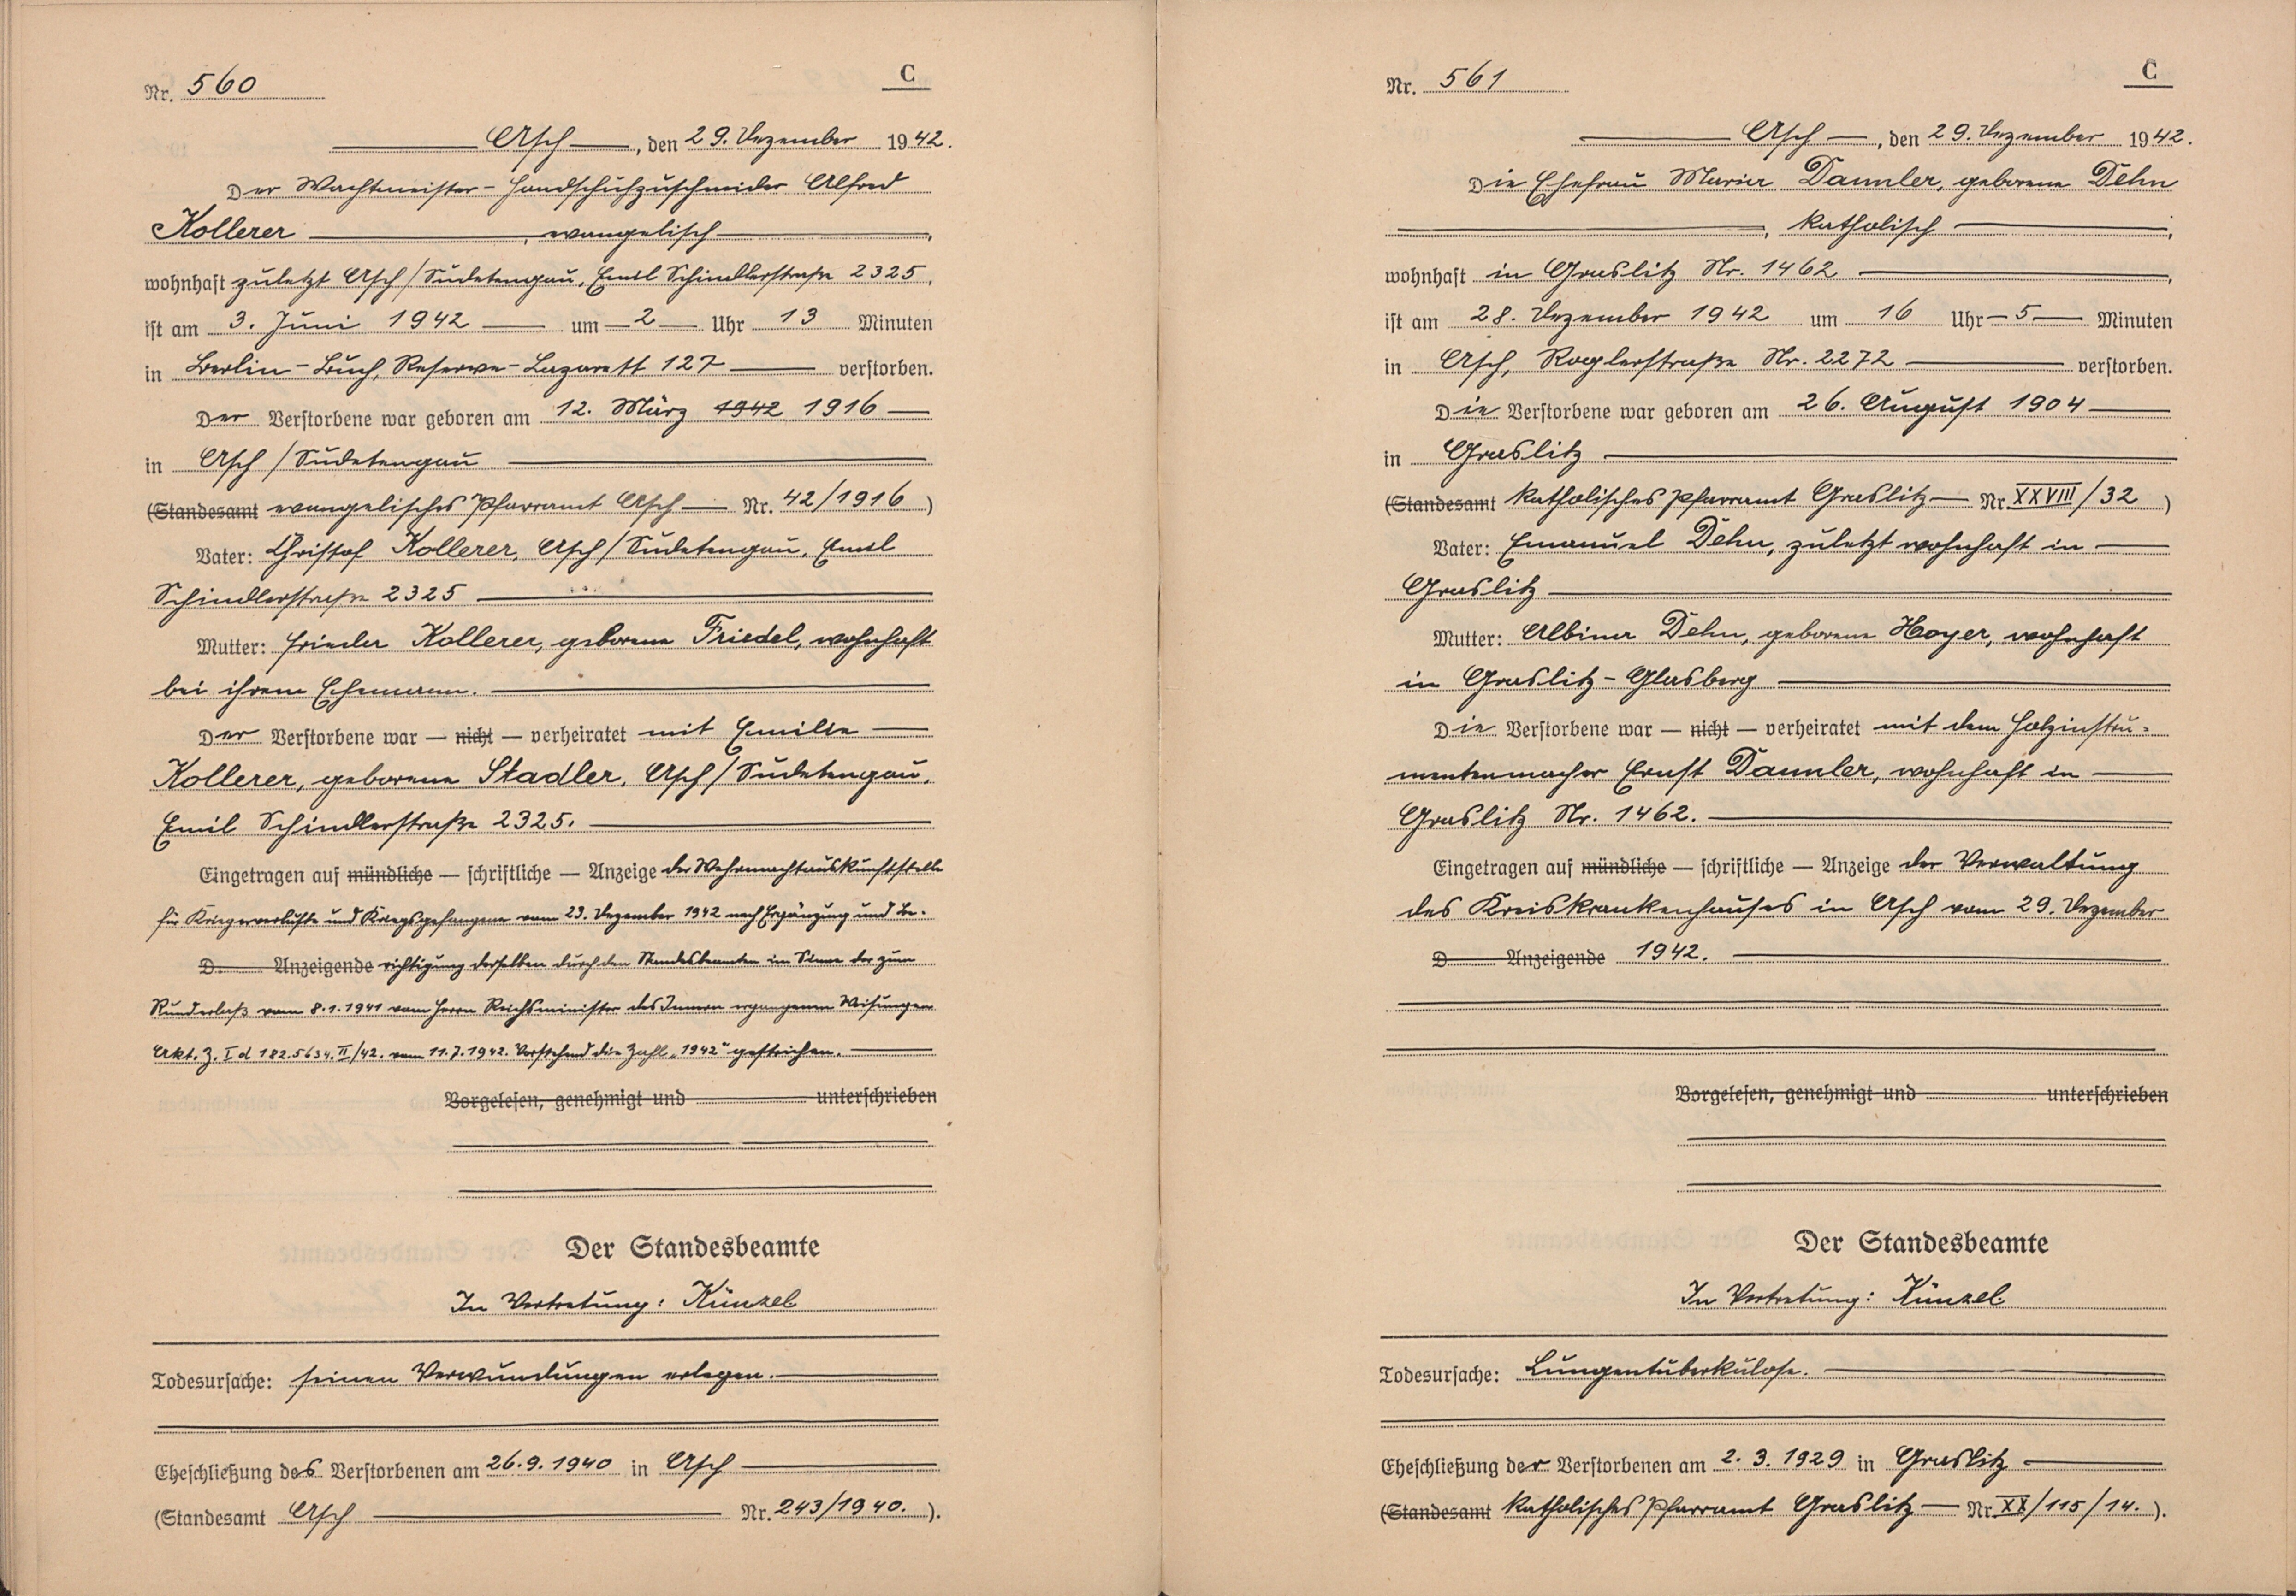 Nr. 560
C
Asch, den 29. Dezember 1942.
Der Wachtmeister - Handschuhzuschneider Alfred
Kollerer, evangelisch,
wohnhaft zuletzt Asch/Sudetengau, Emil Schindlerstraße 2325,
ist am 3. Juni 1942 um 2 Uhr 13 Minuten
in Berlin-Buch, Reserve-Lazarett 127 verstorben.
Der Verstorbene war geboren am 12. März 1942 1916
in Asch/Sudetengau
(Standesamt evangelisches Pfarramt Asch Nr. 42/1916)
Vater: Christof Kollerer, Asch/Sudetengau, Emil
Schindlerstraße 2325
Mutter: Frieda Kollerer, geborene Friedel, wohnhaft
bei ihrem Ehemann.
Der Verstorbene war — nicht — verheiratet mit Emilie
Kollerer, geborene Stadler, Asch/Sudetengau,
Emil Schindlerstraße 2325.
Eingetragen auf mündliche — schriftliche — Anzeige der Wehrmachtauskunftstelle
für Kriegerverluste und Kriegsgefangene vom 23. Dezember 1942 nach Ergänzung und Be-
D. Anzeigende richtigung derselben durch den Standesbeamten im Sinne der zum
Runderlaß vom 8.1.1941 vom Herrn Reichsminister des Innern ergangenen Weisungen
Akt. Z. I d 182.5634.II/42. vom 11.7.1942. Vorstehend die Zahl „1942" gestrichen.
Vorgelesen, genehmigt und unterschrieben
Der Standesbeamte
In Vertretung: Künzel
Todesursache: seinen Verwundungen erlegen.
Eheschließung des Verstorbenen am 26.9.1940 in Asch
(Standesamt Asch Nr. 243/1940.).
Nr. 561
C
Asch, den 29. Dezember 1942.
Die Ehefrau Maria Damler, geborene Dehn
, katholisch,
wohnhaft in Graslitz Nr. 1462,
ist am 28. Dezember 1942 um 16 Uhr 5 Minuten
in Asch, Roglerstraße Nr. 2272 verstorben.
Die Verstorbene war geboren am 26. August 1904
in Graslitz
(Standesamt katholisches Pfarramt Graslitz Nr. XXVIII/32)
Vater: Emanuel Dehn, zuletzt wohnhaft in
Graslitz
Mutter: Albina Dehn, geborene Hoyer, wohnhaft
in Graslitz-Glasberg
Die Verstorbene war — nicht — verheiratet mit dem Holzinstru-
mentenmacher Ernst Damler, wohnhaft in
Graslitz Nr. 1462.
Eingetragen auf mündliche — schriftliche — Anzeige der Verwaltung
des Kreiskrankenhauses in Asch vom 29. Dezember
D Anzeigende 1942.
Vorgelesen, genehmigt und unterschrieben
Der Standesbeamte
In Vertretung: Künzel
Todesursache: Lungentuberkulose.
Eheschließung der Verstorbenen am 2. 3. 1929 in Graslitz
(Standesamt katholisches Pfarramt Graslitz Nr. XX/115/14.).